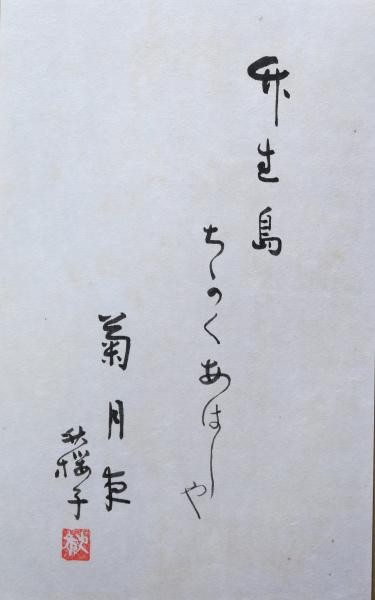 竹生島
ちかくあはしや
菊月夜
秋櫻子